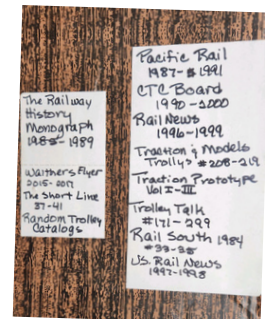 The Railway
History
Monograph
1988-1989
Walthers Flyer
2015-2017
The Short Line
37-41
Random Trolley
Catalogs
Pacific Rail
1987-1991
CTC Board
1990-2000
Rail News
1996-1999
Traction & Models
Trollys #208-219
Traction Prototype
Vol I-III
Trolley Talk
#171-299
Rail South 1984
#33-38
U.S. Rail News
1997-1998